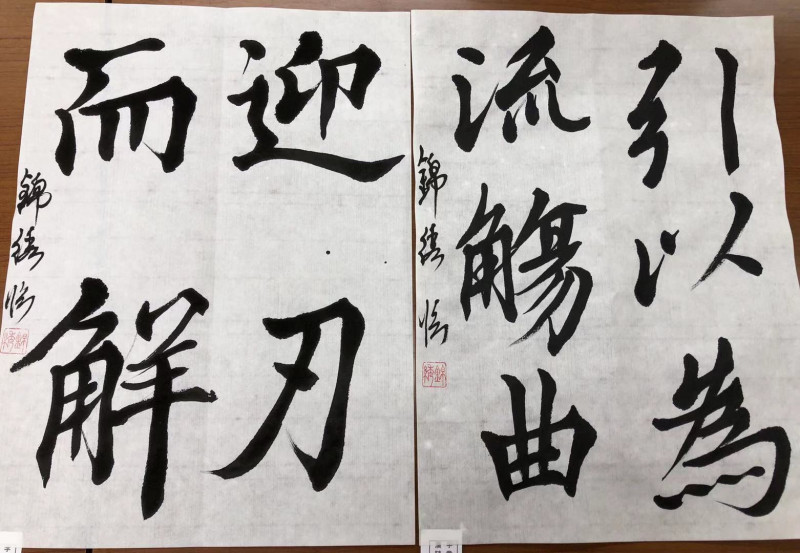 引以為
流觴曲
錦綉臨
迎刃
而解
錦綉臨